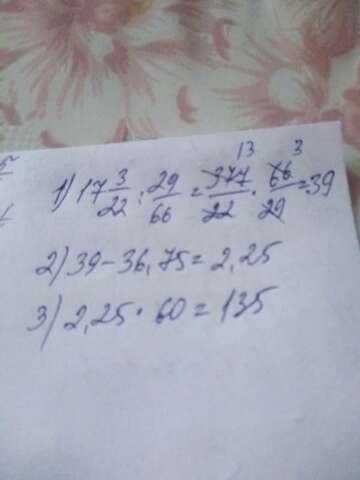 5
13 3
1) 17 3/22 : 29/66 = 377/22 · 66/29 = 39
2) 39 - 36,75 = 2,25
3) 2,25 · 60 = 135